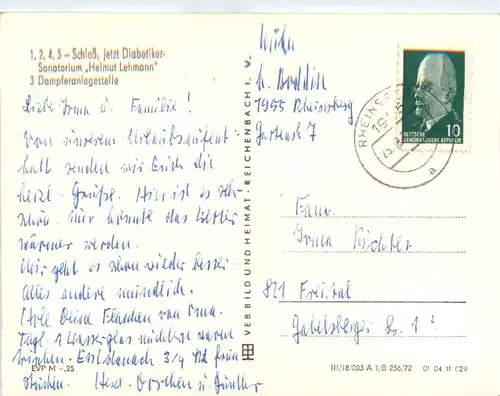 1, 2, 4, 5 – Schloß, jetzt Diabetiker-
Sanatorium „Helmut Lehmann"
3 Dampferanlegestelle
Liebe Irma u. Familie!
Von unserem Urlaubsaufent-
halt senden wir Euch die
herzl. Grüße. Hier ist es sehr
schön, nur könnte das Wetter
wärmer werden.
Mir geht es schon wieder besser.
Alles andere mündlich.
Hole Deine Flaschen von Oma.
Tägl. 1 Wasserglas
3/4 Std
Herzl. Dorchen u. Günther
EVP M –,25
VEB BILD UND HEIMAT · REICHENBACH I. V.
1955 Rheinsberg
RHEINSB
a
10
DEUTSCHE
DEMOKRATISCHE REPUBLIK
Frau
Irma Richter
821 Freital
Gabelsberger Str. 1
III/18/203 A 1/B 256/72 01 04 11 029